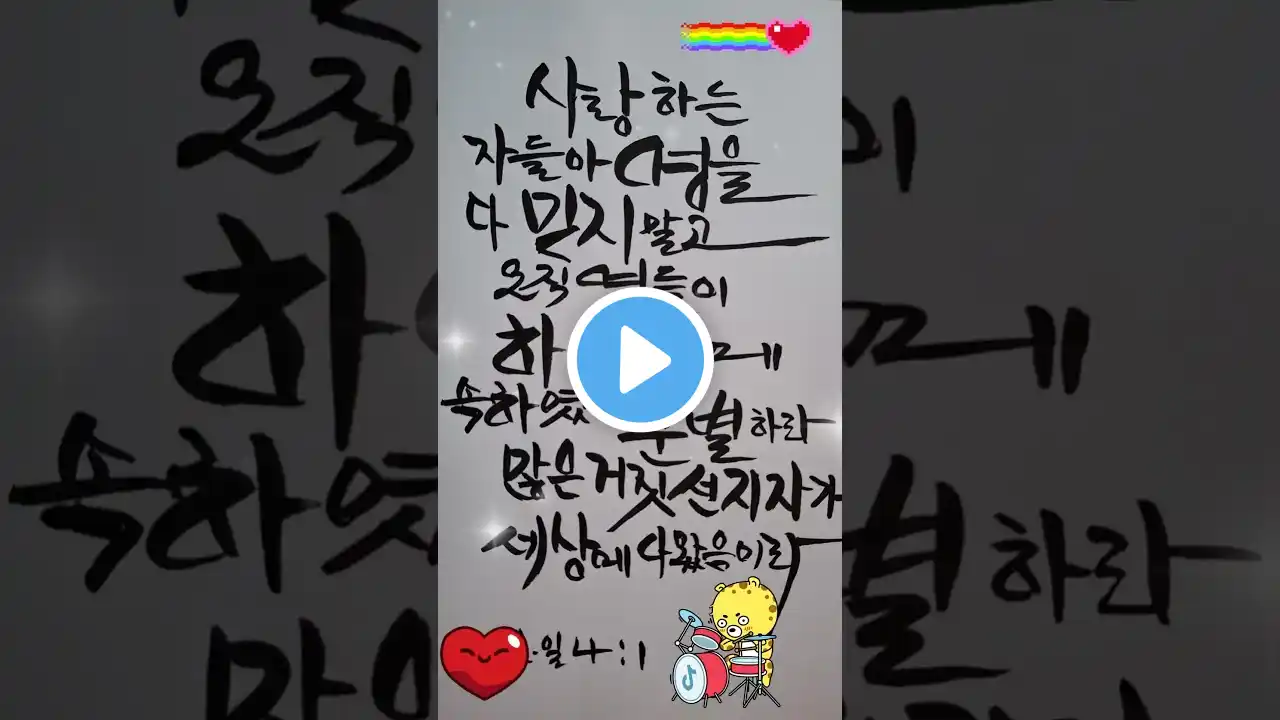 사랑하는
자들아 영을
다 믿지 말고
오직 영들이
하 께
속하였 분별하라
많은 거짓 선지자가
세상에 나왔음이라
요일 4:1